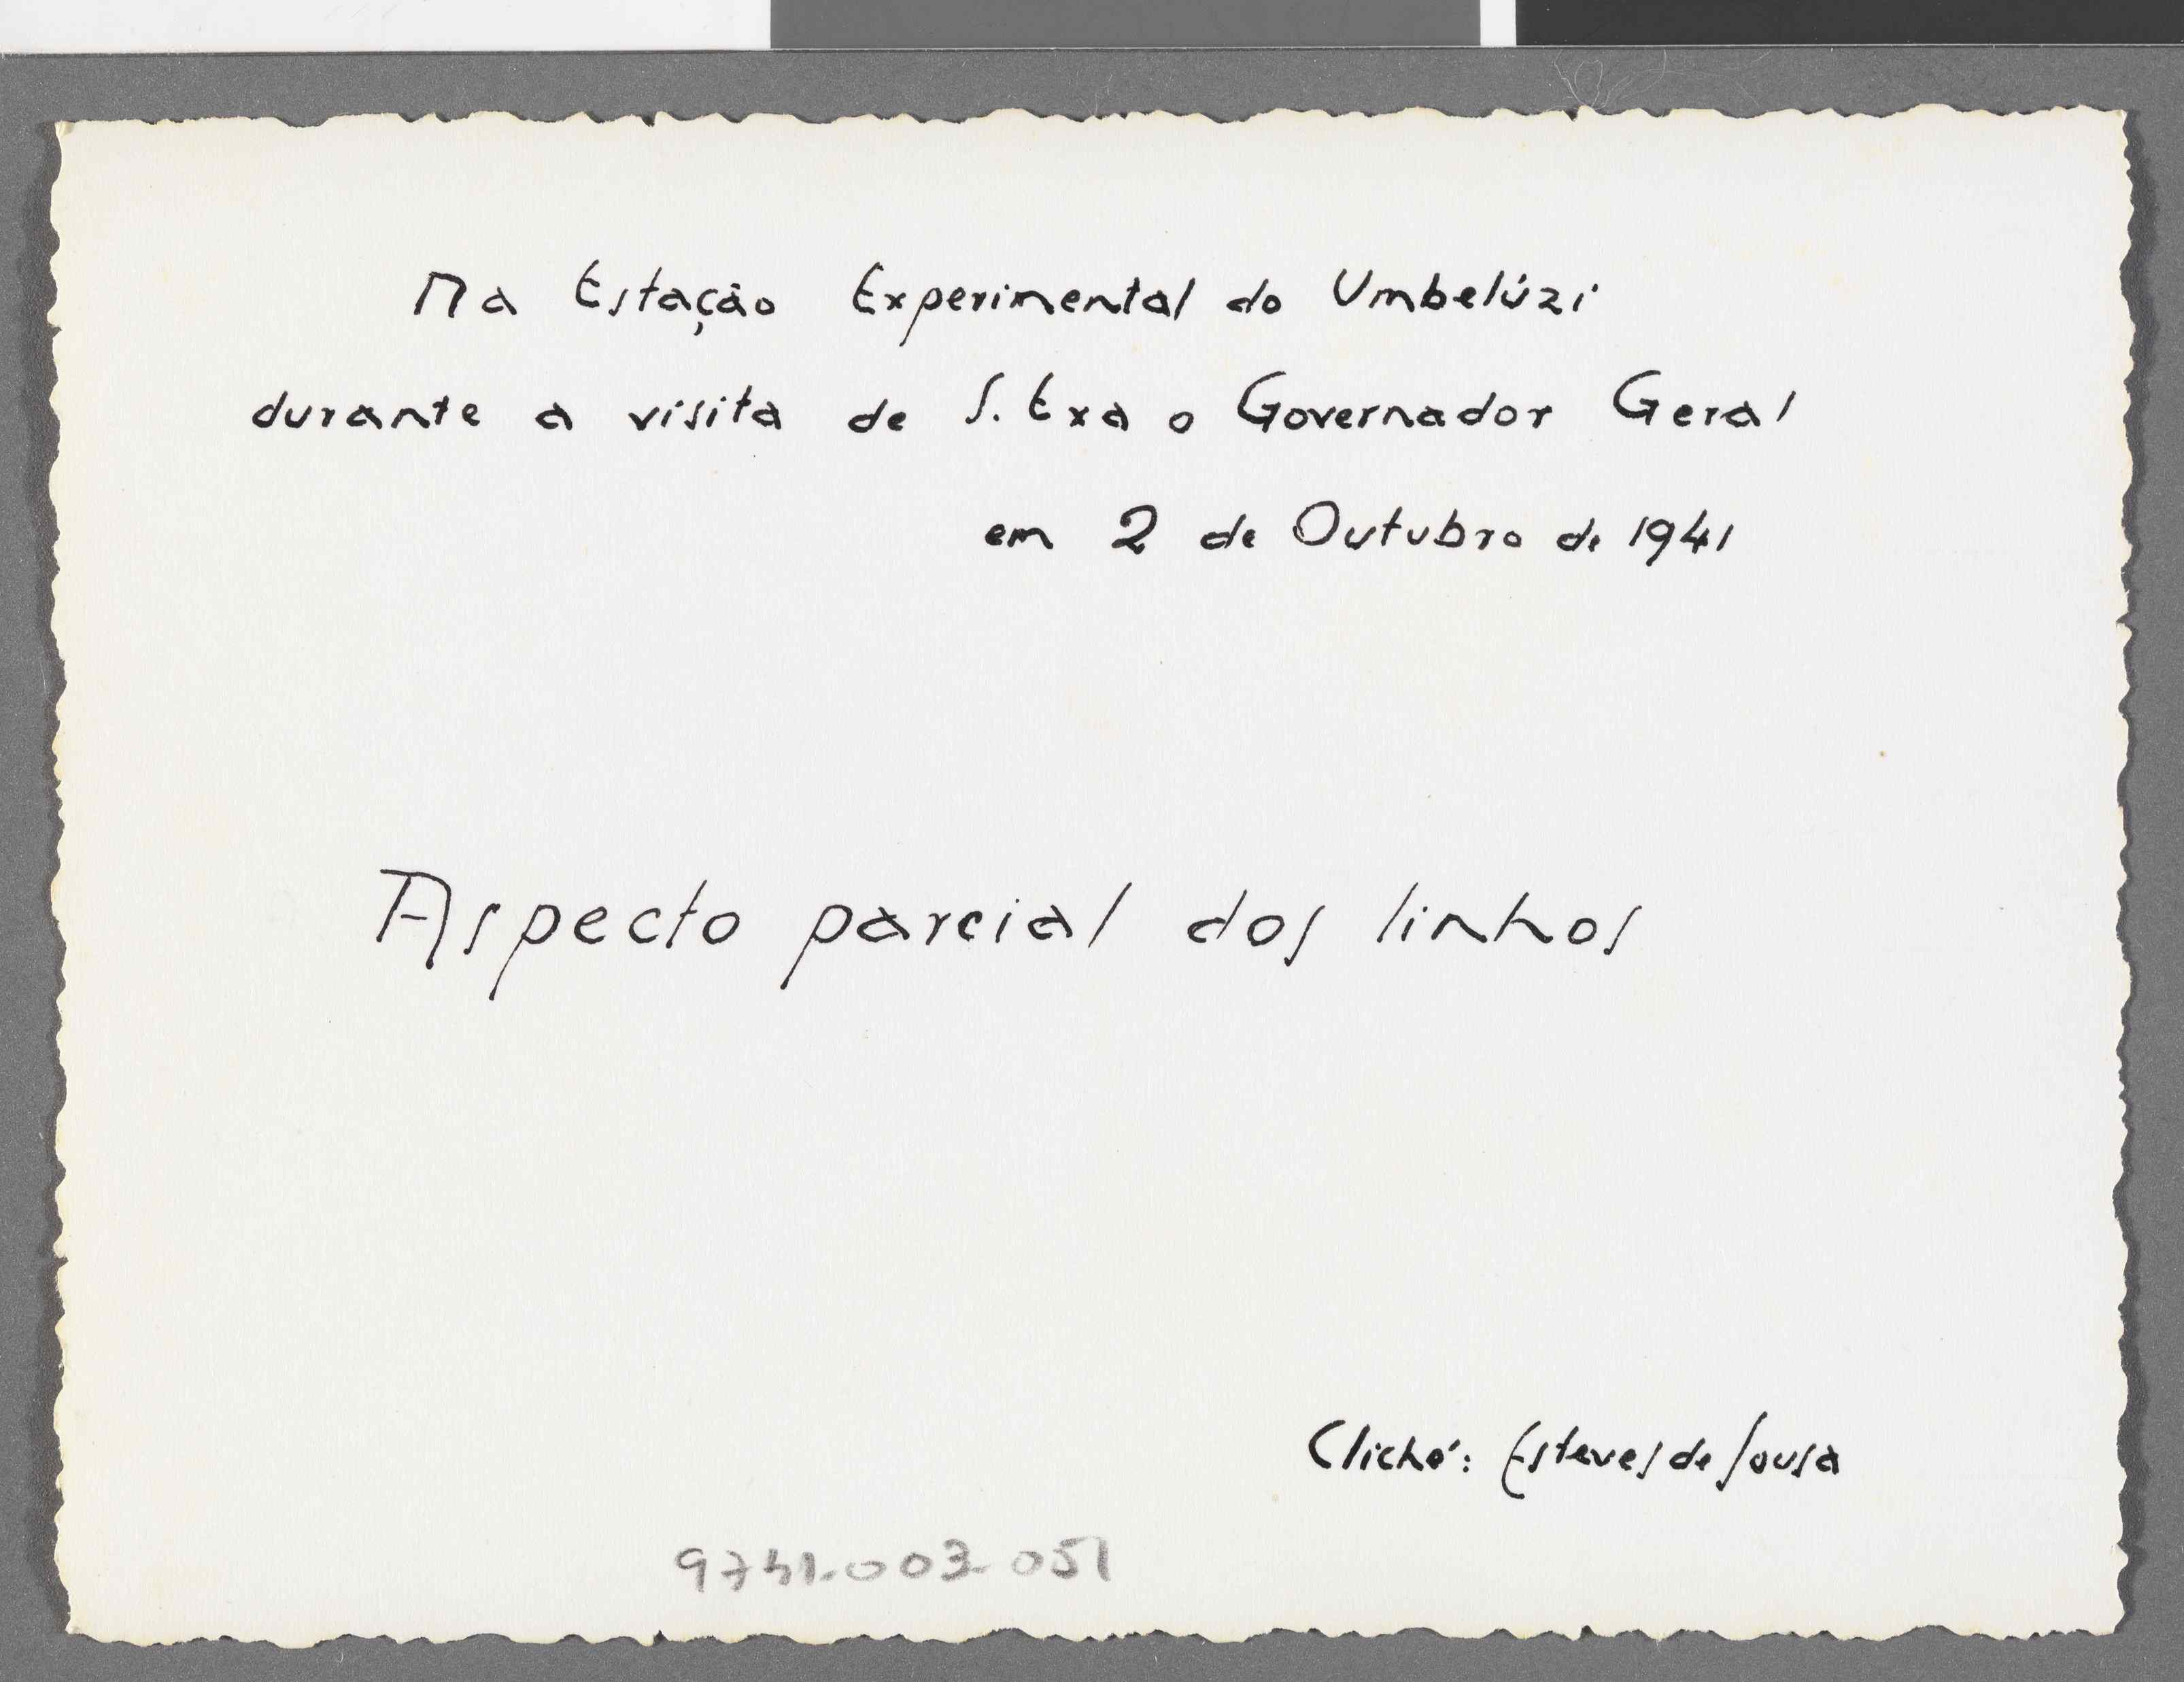 Na Estação Experimental do Umbelúzi
durante a visita de S. Exa o Governador Geral
em 2 de Outubro de 1941
Aspecto parcial dos linhos
Cliché: Esteves de Sousa
9741-003-051